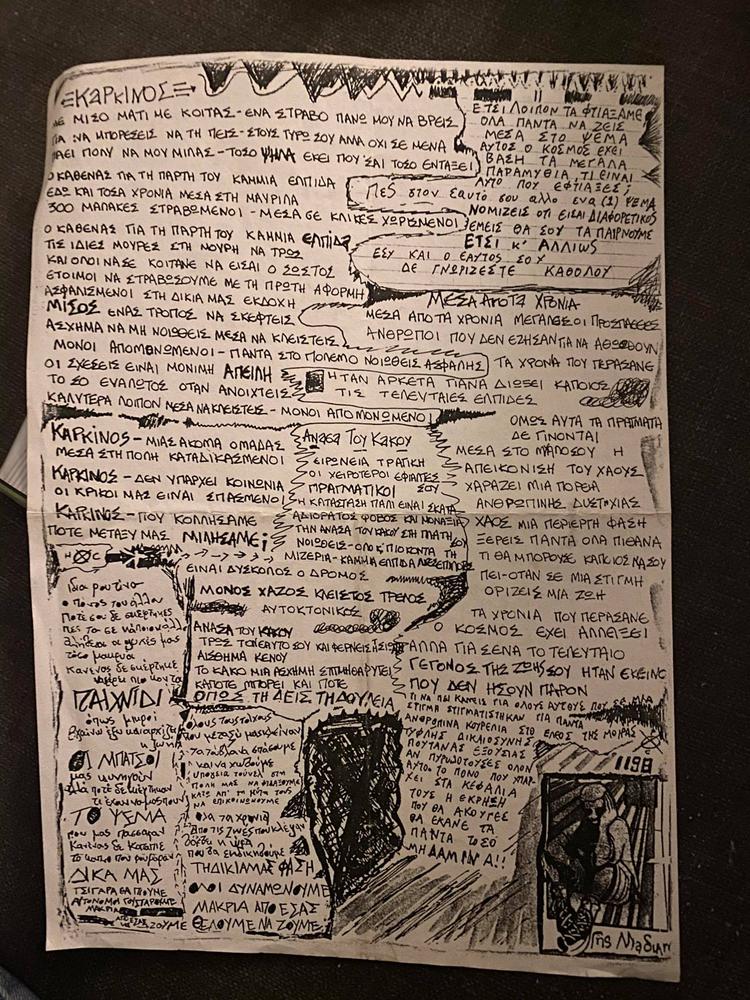 ΚΑΡΚΙΝΟΣ
ΜΕ ΜΙΣΟ ΜΑΤΙ ΜΕ ΚΟΙΤΑΣ - ΕΝΑ ΣΤΡΑΒΟ ΠΑΝΩ ΜΟΥ ΝΑ ΒΡΕΙΣ
ΓΙΑ ΝΑ ΜΠΟΡΕΣΕΙΣ ΝΑ ΤΗ ΠΕΙΣ - ΣΤΟΥΣ ΓΥΡΩ ΣΟΥ ΑΛΛΑ ΟΧΙ ΣΕ ΜΕΝΑ
ΠΑΕΙ ΠΟΛΥ ΝΑ ΜΟΥ ΜΙΛΑΣ - ΤΟΣΟ ΨΗΛΑ ΕΚΕΙ ΠΟΥ ΣΑΙ ΤΟΣΟ ΕΝΤΑΞΕΙ
Ο ΚΑΘΕΝΑΣ ΓΙΑ ΤΗ ΠΑΡΤΗ ΤΟΥ ΚΑΜΜΙΑ ΕΛΠΙΔΑ
ΕΔΩ ΚΑΙ ΤΟΣΑ ΧΡΟΝΙΑ ΜΕΣΑ ΣΤΗ ΜΑΥΡΙΛΑ
300 ΜΑΛΑΚΕΣ ΣΤΡΑΒΩΜΕΝΟΙ - ΜΕΣΑ ΣΕ ΚΛΙΚΕΣ ΧΩΡΙΣΜΕΝΟΙ
Ο ΚΑΘΕΝΑΣ ΓΙΑ ΤΗ ΠΑΡΤΗ ΤΟΥ ΚΑΜΜΙΑ ΕΛΠΙΔΑ
ΤΙΣ ΙΔΙΕΣ ΜΟΥΡΕΣ ΣΤΗ ΜΟΥΡΗ ΝΑ ΤΡΩΣ
ΚΑΙ ΟΛΟΙ ΝΑ ΣΕ ΚΟΙΤΑΝΕ ΝΑ ΕΙΣΑΙ Ο ΣΩΣΤΟΣ
ΕΤΟΙΜΟΙ ΝΑ ΣΤΡΑΒΩΣΟΥΜΕ ΜΕ ΤΗ ΠΡΩΤΗ ΑΦΟΡΜΗ
ΑΣΦΑΛΙΣΜΕΝΟΙ ΣΤΗ ΔΙΚΙΑ ΜΑΣ ΕΚΔΟΧΗ
ΜΙΣΟΣ ΕΝΑΣ ΤΡΟΠΟΣ ΝΑ ΣΚΕΦΤΕΙΣ
ΑΣΧΗΜΑ ΝΑ ΜΗ ΝΟΙΩΘΕΙΣ ΜΕΣΑ ΝΑ ΚΛΕΙΣΤΕΙΣ
ΜΟΝΟΙ ΑΠΟΜΟΝΩΜΕΝΟΙ - ΠΑΝΤΑ ΣΤΟ ΠΟΛΕΜΟ ΝΟΙΩΘΕΙΣ ΑΣΦΑΛΗΣ
ΟΙ ΣΧΕΣΕΙΣ ΕΙΝΑΙ ΜΟΝΙΜΗ ΑΠΕΙΛΗ
ΤΟ ΣΟ ΕΥΑΛΩΤΟΣ ΟΤΑΝ ΑΝΟΙΧΤΕΙΣ
ΚΑΛΥΤΕΡΑ ΛΟΙΠΟΝ ΜΕΣΑ ΝΑ ΚΛΕΙΣΤΕΙΣ - ΜΟΝΟΙ ΑΠΟΜΟΝΩΜΕΝΟΙ
ΚΑΡΚΙΝΟΣ - ΜΙΑΣ ΑΚΟΜΑ ΟΜΑΔΑΣ
ΜΕΣΑ ΣΤΗ ΠΟΛΗ ΚΑΤΑΔΙΚΑΣΜΕΝΟΙ
ΚΑΡΚΙΝΟΣ - ΔΕΝ ΥΠΑΡΧΕΙ ΚΟΙΝΩΝΙΑ
ΟΙ ΚΡΙΚΟΙ ΜΑΣ ΕΙΝΑΙ ΣΠΑΣΜΕΝΟΙ
ΚΑΡΚΙΝΟΣ - ΠΟΥ ΚΟΛΛΗΣΑΜΕ
ΠΟΤΕ ΜΕΤΑΞΥ ΜΑΣ ΜΙΛΗΣΑΜΕ;
ΕΤΣΙ ΛΟΙΠΟΝ ΤΑ ΦΤΙΑΞΑΜΕ
ΟΛΑ ΠΑΝΤΑ ΝΑ ΖΕΙΣ
ΜΕΣΑ ΣΤΟ ΨΕΜΑ
ΑΥΤΟΣ Ο ΚΟΣΜΟΣ ΕΧΕΙ
ΒΑΣΗ ΤΑ ΜΕΓΑΛΑ
ΠΑΡΑΜΥΘΙΑ, ΤΙ ΕΙΝΑΙ
ΑΥΤΟ ΠΟΥ ΕΦΤΙΑΞΕΣ;
ΠΕΣ στον εαυτό σου αλλο ενα (1) ΨΕΜΑ
ΝΟΜΙΖΕΙΣ ΟΤΙ ΕΙΣΑΙ ΔΙΑΦΟΡΕΤΙΚΟΣ
ΕΜΕΙΣ ΘΑ ΣΟΥ ΤΑ ΠΑΙΡΝΟΥΜΕ
ΕΤΣΙ Κ' ΑΛΛΙΩΣ
ΕΣΥ ΚΑΙ Ο ΕΑΥΤΟΣ ΣΟΥ
ΔΕ ΓΝΩΡΙΖΕΣΤΕ ΚΑΘΟΛΟΥ
ΜΕΣΑ ΑΠΟ ΤΑ ΧΡΟΝΙΑ
ΜΕΣΑ ΑΠΟ ΤΑ ΧΡΟΝΙΑ ΜΕΓΑΛΕΣ ΟΙ ΠΡΟΣΠΑΘΕΙΕΣ
ΑΝΘΡΩΠΟΙ ΠΟΥ ΔΕΝ ΕΖΗΣΑΝ ΓΙΑ ΝΑ ΑΘΩΩΘΟΥΝ
ΤΑ ΧΡΟΝΑ ΠΟΥ ΠΕΡΑΣΑΝΕ
ΗΤΑΝ ΑΡΚΕΤΑ ΓΙΑ ΝΑ ΔΙΩΞΕΙ ΚΑΠΟΙΟΣ
ΤΙΣ ΤΕΛΕΥΤΑΙΕΣ ΕΛΠΙΔΕΣ
ΟΜΩΣ ΑΥΤΑ ΤΑ ΠΡΑΓΜΑΤΑ
ΔΕ ΓΙΝΟΝΤΑΙ
ΜΕΣΑ ΣΤΟ ΜΥΑΛΟ ΣΟΥ Η
ΑΠΕΙΚΟΝΙΣΗ ΤΟΥ ΧΑΟΥΣ
ΧΑΡΑΖΕΙ ΜΙΑ ΠΟΡΕΙΑ
ΑΝΘΡΩΠΙΝΗΣ ΔΥΣΤΥΧΙΑΣ
ΧΑΟΣ ΜΙΑ ΠΕΡΙΕΡΓΗ ΦΑΣΗ
ΞΕΡΕΙΣ ΠΑΝΤΑ ΟΛΑ ΠΙΘΑΝΑ
ΤΙ ΘΑ ΜΠΟΡΟΥΣΕ ΚΑΠΟΙΟΣ ΝΑ ΣΟΥ
ΠΕΙ - ΟΤΑΝ ΣΕ ΜΙΑ ΣΤΙΓΜΗ
ΟΡΙΖΕΙΣ ΜΙΑ ΖΩΗ
ΤΑ ΧΡΟΝΙΑ ΠΟΥ ΠΕΡΑΣΑΝΕ
Ο ΚΟΣΜΟΣ ΕΧΕΙ ΑΛΛΕΞΕΙ
ΑΛΛΑ ΓΙΑ ΣΕΝΑ ΤΟ ΤΕΛΕΥΤΑΙΟ
ΓΕΓΟΝΟΣ ΤΗΣ ΖΩΗΣ ΣΟΥ ΗΤΑΝ ΕΚΕΙΝΟ
ΠΟΥ ΔΕΝ ΗΣΟΥΝ ΠΑΡΟΝ
ΤΙ ΝΑ ΠΕΙ ΚΑΝΕΙΣ ΓΙΑ ΟΛΟΥΣ ΑΥΤΟΥΣ ΠΟΥ ΣΕ ΜΙΑ
ΣΤΙΓΜΑ ΣΤΙΓΜΑΤΙΣΤΗΚΑΝ ΓΙΑ ΠΑΝΤΑ
ΑΝΘΡΩΠΙΝΑ ΚΟΥΡΕΛΙΑ ΣΤΟ ΕΛΕΟΣ ΤΗΣ ΜΟΙΡΑΣ
ΤΥΦΛΗΣ ΔΙΚΑΙΟΣΥΝΗΣ
ΠΟΥΤΑΝΑΣ ΕΞΟΥΣΙΑΣ
ΑΝ ΠΥΡΩΔΟΤΟΥΣΕΣ ΟΛΟΝ
ΑΥΤΟΝ ΤΟ ΠΟΝΟ ΠΟΥ ΥΠΑΡ
ΧΕΙ ΣΤΑ ΚΕΦΑΛΙΑ
ΤΟΥΣ Η ΕΚΡΗΞΗ
ΠΟΥ ΘΑ ΑΚΟΥΓΕΣ
ΘΑ ΕΚΑΝΕ ΤΑ
ΠΑΝΤΑ ΤΟΣΟ
ΜΗΔΑΜΙΝΑ!!
ΑΝΑΣΑ ΤΟΥ ΚΑΚΟΥ
ΕΙΡΩΝΕΙΑ ΤΡΑΓΙΚΗ
ΟΙ ΧΕΙΡΟΤΕΡΟΙ ΕΦΙΑΛΤΕΣ
ΠΡΑΓΜΑΤΙΚΟΙ ΣΟΥ
Η ΚΑΤΑΣΤΑΣΗ ΠΑΛΙ ΕΙΝΑΙ ΣΚΑΤΑ
ΑΔΙΟΡΑΤΟΣ ΦΟΒΟΣ ΚΑΙ ΜΟΝΑΞΙΑ
ΤΗΝ ΑΝΑΣΑ ΤΟΥ ΚΑΚΟΥ ΣΤΗ ΠΛΑΤΗ ΣΟΥ
ΜΙΖΕΡΙΑ - ΚΑΜΜΙΑ ΕΛΠΙΔΑ
ΕΙΝΑΙ ΔΥΣΚΟΛΟΣ Ο ΔΡΟΜΟΣ
ΜΟΝΟΣ ΧΑΖΟΣ ΚΛΕΙΣΤΟΣ ΤΡΕΛΟΣ
ΑΥΤΟΚΤΟΝΙΚΟΣ
ΑΝΑΣΑ ΤΟΥ ΚΑΚΟΥ
ΤΡΩΣ ΤΟΝ ΕΑΥΤΟ ΣΟΥ ΚΑΙ ΦΕΡΝΕΙΣ
ΑΙΣΘΗΜΑ ΚΕΝΟΥ
ΤΟ ΚΑΚΟ ΜΙΑ ΑΣΧΗΜΗ ΣΤΙΓΜΗ ΘΑ ΡΤΕΙ
ΚΑΠΟΤΕ ΜΠΟΡΕΙ ΚΑΙ ΠΟΤΕ
ΟΠΩΣ ΤΗ ΔΕΙΣ ΤΗ ΔΟΥΛΕΙΑ
Ίδια ρουτίνα
ο πόνος του άλλου
Ποτέ σου δε σκέφτηκες
Κανένας δε σκέφτηκε
ΠΑΙΧΝΙΔΙ
όπως μπορεί
ΟΙ ΜΠΑΤΣΟΙ
μας κυνηγούν
ΤΟ ΨΕΜΑ
που μας πασαραν
Κανένας δε κατάπιε
ΔΙΚΑ ΜΑΣ
ΤΣΙΓΑΡΑ ΘΑ ΠΙΟΥΜΕ
ΑΥΤΟΝΟΜΟΙ ΓΟΥΣΤΑΡΟΥΜΕ
ΜΑΚΡΙΑ ΑΠΟ ΕΣΑΣ
ΝΑ ΖΟΥΜΕ
όλους τους τοίχους
που μεταξύ μας κλείναν
ΝΑ ΕΠΙΚΟΙΝΩΝΟΥΜΕ
Όλα τα χρόνια
που θα εκδικηθούμε
ΤΗ ΔΙΚΙΑ ΜΑΣ ΦΑΣΗ
ΟΛΟΙ ΔΥΝΑΜΩΝΟΥΜΕ
ΜΑΚΡΙΑ ΑΠΟ ΕΣΑΣ
ΘΕΛΟΥΜΕ ΝΑ ΖΟΥΜΕ
1198